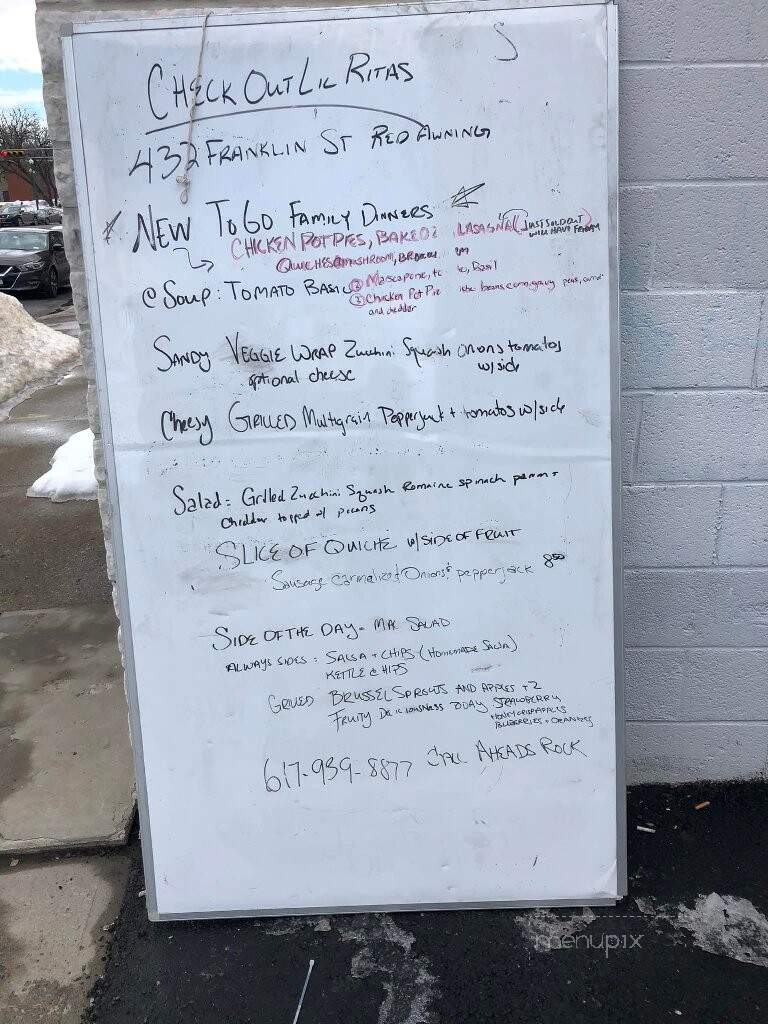 S
CHECK OUT LIL RITAS
432 FRANKLIN ST RED AWNING
NEW TO GO FAMILY DINNERS
CHICKEN POT PIES, BAKED LASAGNA (JUST SOLD OUT
WILL HAVE
QUICHES MUSHROOM,
@ SOUP: TOMATO BASIL ② Mascarpone, Basil
① Chicken Pot Pie beans, corn, gravy peas,
and cheddar
SANDY VEGGIE WRAP Zucchini Squash onions tomatos
optional cheese w/side
Cheesy GRILLED Multigrain Pepperjack + tomatos w/side
Salad = Grilled Zucchini Squash Romaine spinach parm +
Cheddar topped w/ pecans
SLICE OF QUICHE w/ SIDE OF FRUIT
Sausage Carmelized Onions & pepperjack 8.50
SIDE OF THE DAY - MAC SALAD
ALWAYS SIDES: SALSA + CHIPS (HOMEMADE SALSA)
KETTLE CHIPS
GRILLED BRUSSEL SPROUTS AND APPLES +2
FRUITY DELICIOUSNESS TODAY STRAWBERRY,
HONEYCRISP APPLES
BLUEBERRIES + ORANGES
617-939-8877 CALL AHEADS ROCK
menupix